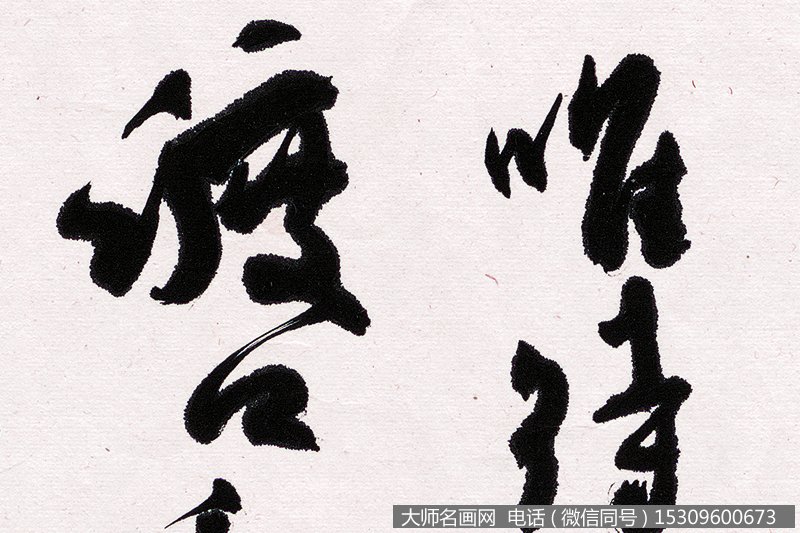 唯
渡口
大师名画网 电话（微信同号）15309600673